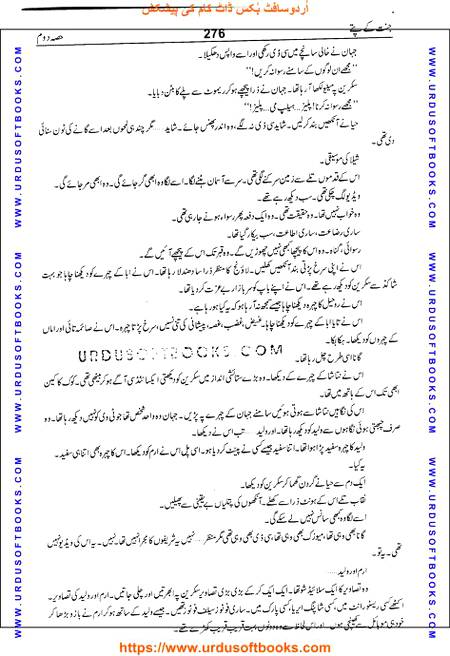 اُردو سافٹ بُکس ڈاٹ کام کی پیشکش
جنت کے پتے
276
حصہ دوم
جہان نے خالی سانچے میں سی ڈی رکھی اور اسے واپس دھکیلا۔
”مجھے ان لوگوں کے سامنے رسوا نہ کریں!“
سکرین پہ میلو لکھا آ رہا تھا۔ جہان نے ذرا پیچھے ہو کر ریموٹ سے پلے کا بٹن دبایا۔
”مجھے رسوا نہ کرنا! پلیز..... ہیلپ می..... پلیز!“
حیا نے آنکھیں بند کر لیں۔ شاید سی ڈی نہ لگے، وہ اندر پھنس جائے۔ شاید..... مگر چند ہی لمحوں بعد اسے گانے کی ٹون سنائی
دی تھی۔
شیلا کی موسیقی۔
اس کے قدموں تلے سے زمین سرکنے لگی تھی۔ سر سے آسمان ہٹنے لگا۔ اسے لگا وہ ابھی گر جائے گی۔ وہ ابھی مر جائے گی۔
ویڈیو لگ چکی تھی۔ سب دیکھ رہے تھے۔
وہ خواب نہیں تھا۔ وہ حقیقت تھی۔ وہ ایک دفعہ پھر رسوا ہونے جا رہی تھی۔
ساری رضاعت، ساری اطاعت، سب بیکار گیا تھا۔
رسوائی، گناہ۔ وہ اس کا پیچھا کبھی نہیں چھوڑیں گے۔ وہ قبر تک اس کے پیچھے آئیں گے۔
اس نے اپنی سرخ پڑتی بند آنکھیں کھولیں۔ لاؤنج کا منظر ذرا سا دھندلا رہا تھا۔ اس نے ابا کے چہرے کو دیکھنا چاہا جو بہت
شاکڈ سے سکرین کو دیکھ رہے تھے۔ اس نے اپنے باپ کو سر بازار بے عزت کر دیا تھا۔
اس نے روحیل کا چہرہ دیکھنا چاہا جیسے سمجھ نہ آ رہا ہو کہ یہ کیا ہو رہا ہے۔
اس نے تایا ابا کے چہرے کو دیکھنا چاہا۔ غیض، غضب، غصہ، پیشانی کی تنی نسیں، سرخ پڑتا چہرہ۔ اس نے صائمہ تائی اور اماں
کے چہروں کو دیکھا۔ ہکا بکا۔
URDUSOFTBOOKS.COM
گانا اسی طرح چل رہا تھا۔
اس نے نتاشا کے چہرے کو دیکھا۔ وہ بڑے ستائشی انداز میں سکرین کو دیکھتی ایکسائٹڈ سی آگے ہو کر بیٹھی تھی۔ کوک کا کین
ابھی تک اس کے ہاتھ میں تھا۔
اس کی نگاہیں نتاشا سے ہوتی ہوئیں سامنے جہان کے چہرے پہ پڑیں۔ جہان وہ واحد شخص تھا جو ٹی وی کو نہیں دیکھ رہا تھا۔ وہ
صرف چبھتی ہوئی نگاہوں سے ولید کو دیکھ رہا تھا۔ اور ولید ..... تب اس نے دیکھا۔
ولید کا چہرہ سفید پڑا ہوا تھا۔ اتنا سفید جیسے کسی نے پینٹ کر دیا ہو۔ اسی پل اس نے ارم کو دیکھا۔ اس کا چہرہ بھی اتنا ہی سفید۔
یہ کیا۔
ایک دم سے حیا نے گردن گھما کر سکرین کو دیکھا۔
نقاب تلے اس کے ہونٹ ذرا سے کھلے۔ آنکھوں کی پتلیاں بے یقینی سے پھیلیں۔
اسے لگا وہ کبھی سانس نہیں لے سکے گی۔
گانا بھی وہی تھا، میوزک بھی وہی تھا، سی ڈی بھی وہی تھی مگر منظر..... نہیں یہ شریفوں کا مجرا نہیں تھا۔ نہیں۔ یہ اس کی ویڈیو نہیں
تھی۔ یہ تو۔
ارم اور ولید.....
وہ تصاویر کا ایک سلائیڈ شو تھا۔ ایک ایک کر کے بڑی بڑی تصاویر سکرین پہ ابھرتیں اور چلی جاتیں۔ ارم اور ولید کی تصاویر۔
اکٹھے کسی ریسٹورانٹ میں، کسی شاپنگ ایریا، کسی پارک میں۔ ساری فوٹوز سیلف فوٹوز تھیں۔ جیسے ولید کے ساتھ ہو کر ارم نے بازو بڑھا کر
خود ہی موبائل سے کھینچی ہوں اور اس لحاظ سے وہ دونوں بہت قریب قریب کھڑے تھے۔
WWW.URDUSOFTBOOKS.COM
WWW.URDUSOFTBOOKS.COM
WWW.URDUSOFTBOOKS.COM
WWW.URDUSOFTBOOKS.COM
WWW.URDUSOFTBOOKS.COM
WWW.URDUSOFTBOOKS.COM
https://www.urdusoftbooks.com